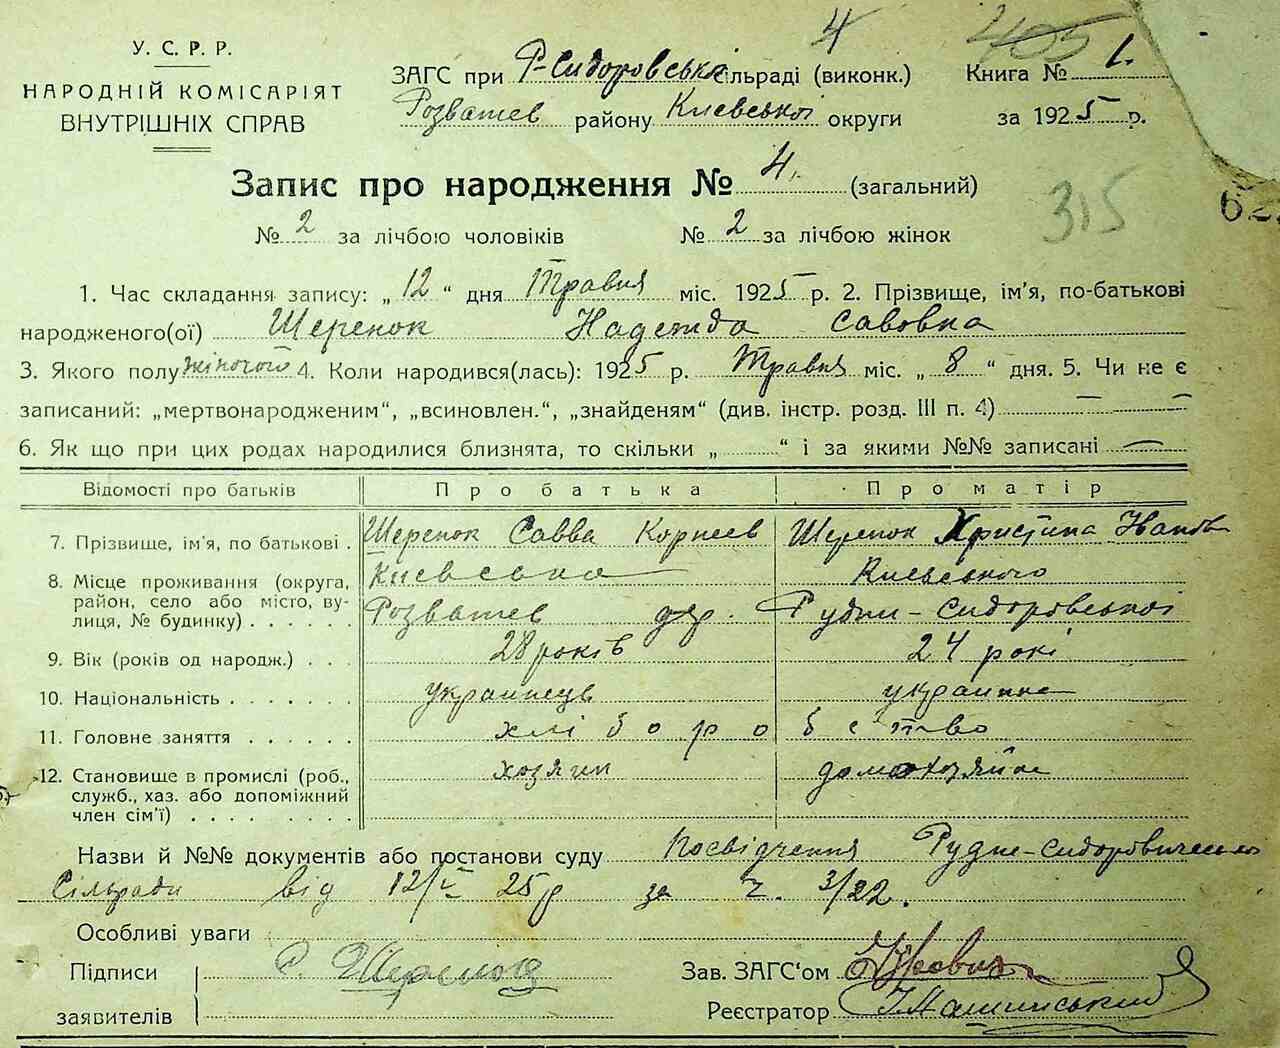 4
405
У. С. Р. Р.
НАРОДНІЙ КОМІСАРІЯТ
ВНУТРІШНІХ СПРАВ
ЗАГС при Р-Сидоровські сільраді (виконк.)
Розватев району Киевської округи
Книга № 1.
за 1925 р.
Запис про народження № 4. (загальний)
№ 2 за лічбою чоловіків № 2 за лічбою жінок
315
62
1. Час складання запису: „ 12 “ дня Травня міс. 1925 р. 2. Прізвище, ім'я, по-батькові
народженого(ої) Шеренок Надежда Савовна
3. Якого полу жіночого 4. Коли народився(лась): 1925 р. Травня міс. „ 8 “ дня. 5. Чи не є
записаний: „мертвонародженим“, „всиновлен.“, „знайденям“ (див. інстр. розд. III п. 4) — —
6. Як що при цих родах народилися близнята, то скільки „ “ і за якими №№ записані —
Відомості про батьків Про батька Про матір
7. Прізвище, ім'я, по батькові . Шеренок Савва Корнеев Шеренок Христина Іванов
8. Місце проживання (округа, Киевська Киевського
район, село або місто, ву- Розватев Рудни-Сидоровської
лиця, № будинку) . . . . .
9. Вік (років од народж.) . . . 28 років 24 рокі
10. Національність . . . . . . . украинець украинка
11. Головне заняття . . . . . . хлібороб ство
12. Становище в промислі (роб., хозяин домохозяйка
служб., хаз. або допоміжний
член сім'ї) . . . . . . . .
Назви й №№ документів або постанови суду Посвідчення
Сільради від 12/V 25р за ч. 3/22.
Особливі уваги
Підписи Зав. ЗАГС'ом
заявителів Реєстратор